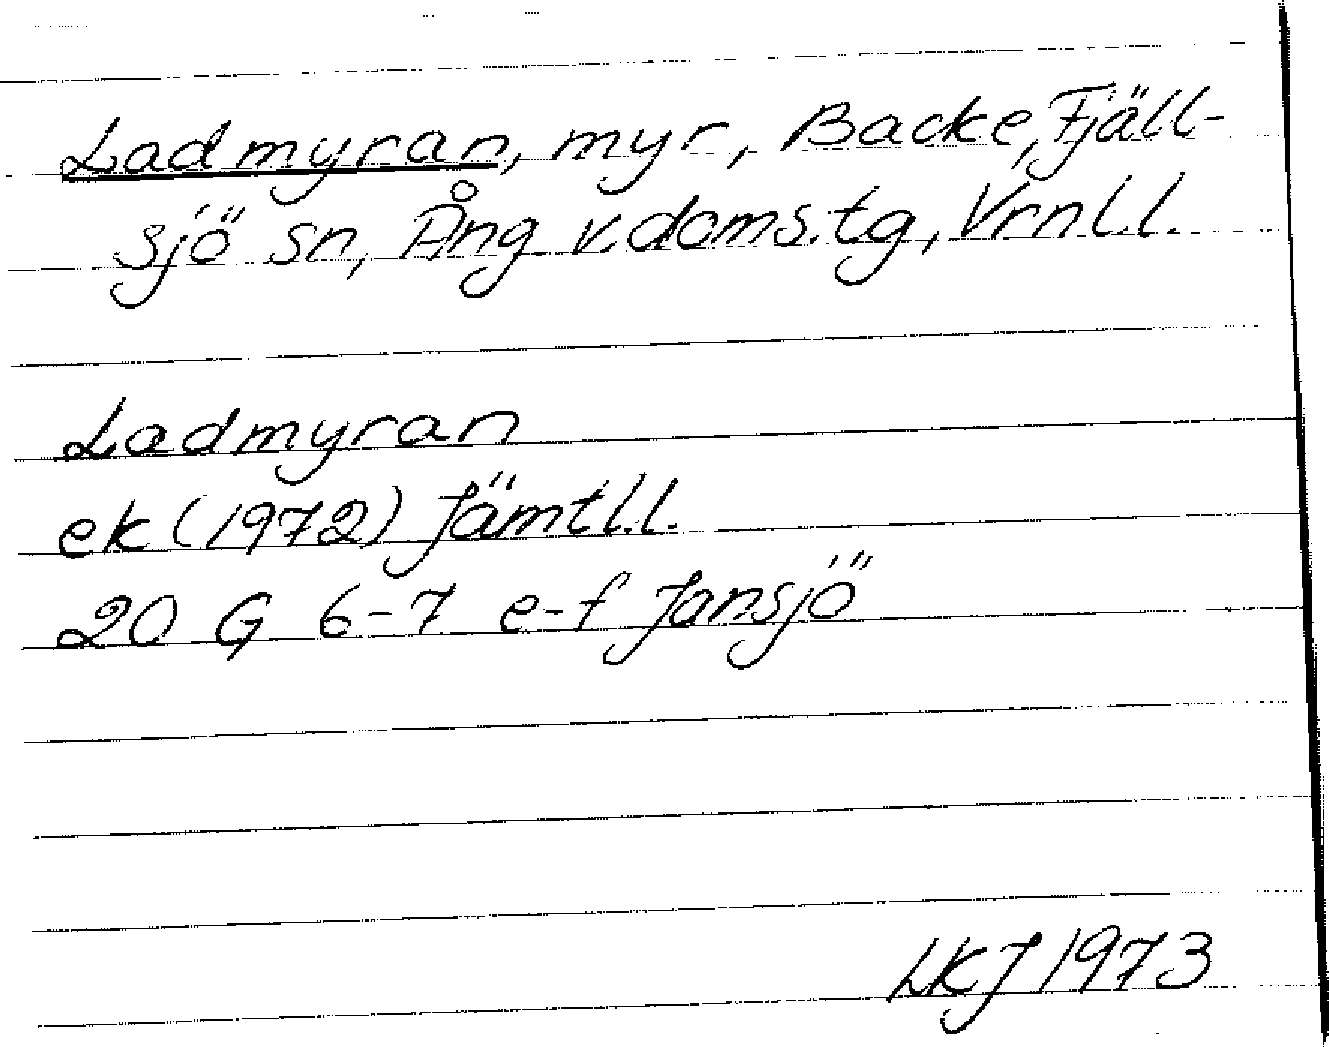 Ladmyran, myr, Backe, Fjäll-
sjö sn, Ång v. doms.tg, Vrnl.l.
Ladmyran
ek (1972) Jämtl.l.
20 G 6-7 e-f Jansjö
LKJ 1973